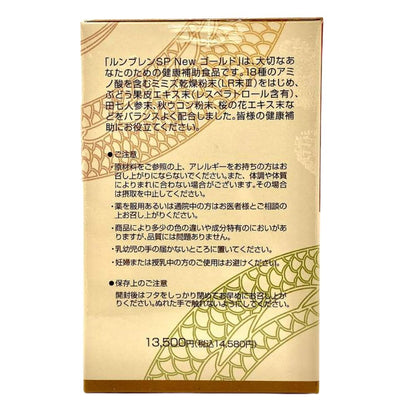 「ルンブレンSP New ゴールド」は、大切なあ
なたのための健康補助食品です。18種のアミ
ノ酸を含むミミズ乾燥粉末(LR末Ⅲ)をはじめ、
ぶどう果皮エキス末(レスベラトロール含有)、
田七人参末、秋ウコン粉末、桜の花エキス末な
どをバランスよく配合しました。皆様の健康補
助にお役立てください。
●ご注意
・原材料をご参照の上、アレルギーをお持ちの方はお
召し上がりにならないでください。また、体調や体質
によりまれに合わない場合がございます。その場合
は摂取を中止してください。
・薬を服用あるいは通院中の方はお医者様とご相談の
上お召し上がりください。
・商品により多少の色の違いや成分特有のにおいがあ
りますが、品質には問題ありません。
・乳幼児の手の届かないところに置いてください。
・妊婦または授乳中の方のご使用はお避けください。
●保存上のご注意
開封後はフタをしっかり閉めてお早めにお召し上が
りください。ぬれた手で触れないようにしてください。
13,500円(税込14,580円)